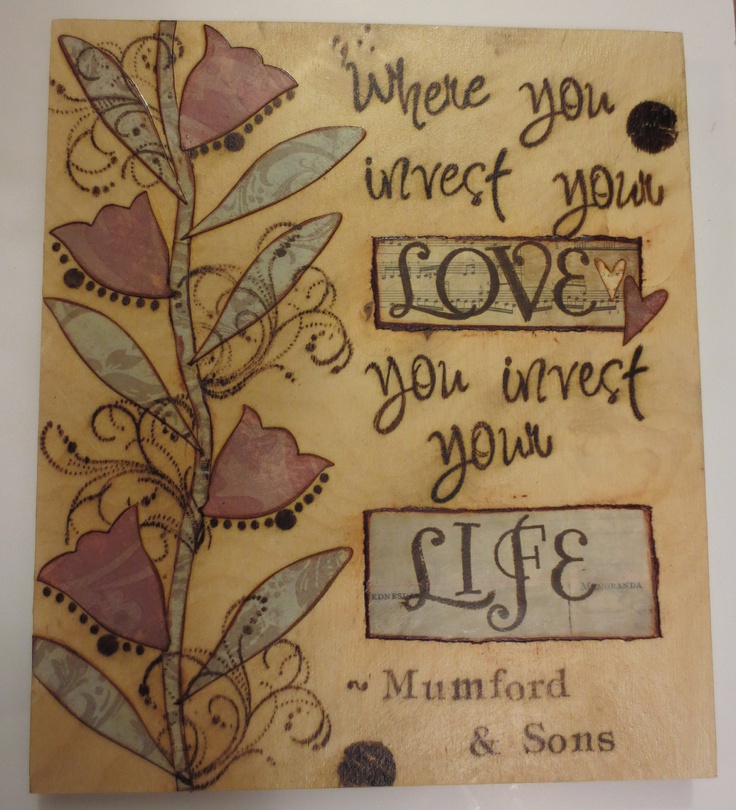 Where you
invest your
LOVE
you invest
your
LIFE
EDNES
MEMORANDA
~ Mumford
& Sons